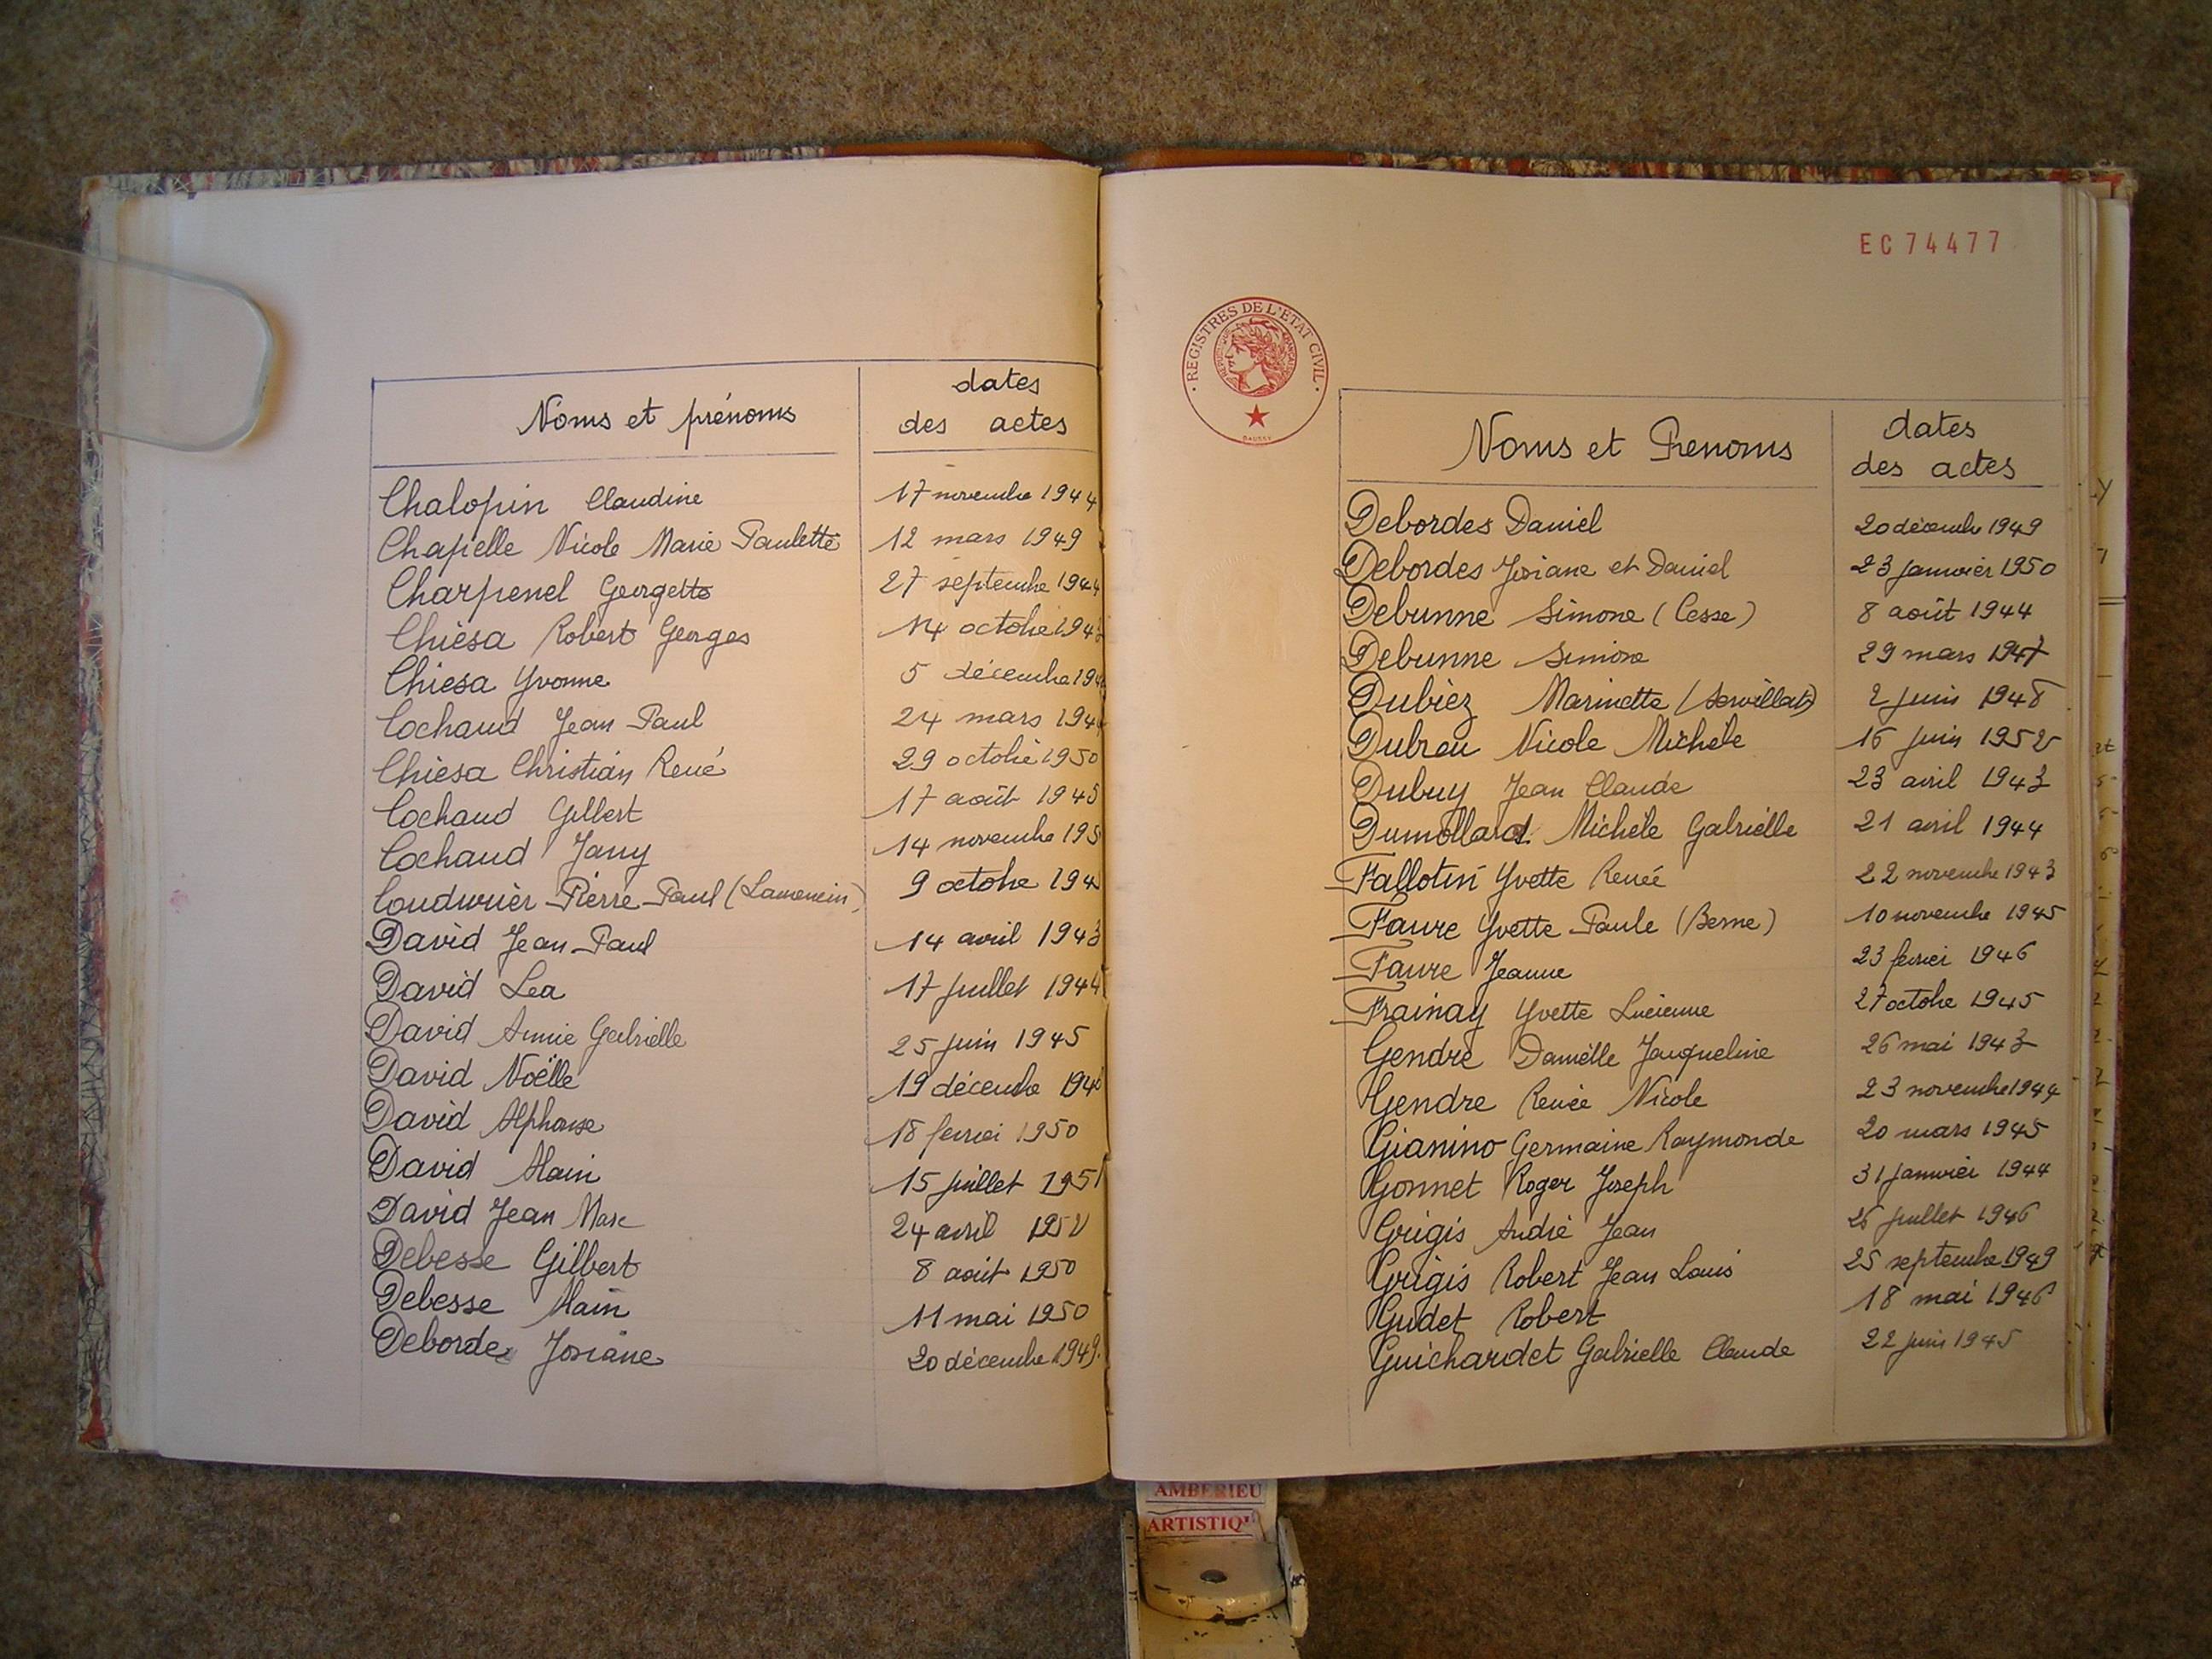 Noms et prénoms
dates
des actes
Chalopin Claudine 17 novembre 1944
Chapelle Nicole Marie Paulette 12 mars 1949
Charpenel Georgette 27 septembre 1944
Chiesa Robert Georges 14 octobre
Chiesa Yvonne 5 décembre
Cochaud Jean-Paul 24 mars
Chiesa Christian René 29 octobre 1950
Cochaud Gilbert 17 août 1945
Cochaud Jany 14 novembre
Coudurier Pierre-Paul 9 octobre
David Jean-Paul 14 avril 1943
David Lea 17 juillet 1944
David Annie Gabrielle 25 juin 1945
David Noëlle 19 décembre
David Alphonse 18 fevrier 1950
David Alain 15 juillet 1951
David Jean Marc 24 avril 1952
Debesse Gilbert 8 août 1950
Debesse Alain 11 mai 1950
Debordes Josiane 20 décembre 1949.
EC 74477
REGISTRES DE L'ETAT CIVIL
Noms et Prenoms
dates
des actes
Debordes Daniel 20 décembre 1949
Debordes Josiane et Daniel 23 janvier 1950
Debunne Simone (Cesse) 8 août 1944
Debunne Simone 29 mars 1947
Dubiez Marinette (Servillat) 2 juin 1948
Dubreu Nicole Michèle 16 juin 1952
Dubuy Jean Claude 23 avril 1943
Dumollard Michèle Gabrielle 21 avril 1944
Fallotin Yvette Renée 22 novembre 1943
Faure Yvette Paule (Berne) 10 novembre 1945
Faure Jeanne 23 fevrier 1946
Frainay Yvette Lucienne 27 octobre 1945
Gendre Danièlle Jacqueline 26 mai 1943
Gendre Renée Nicole 23 novembre 1944
Gianino Germaine Raymonde 20 mars 1945
Gonnet Roger Joseph 31 janvier 1944
Grigis André Jean 26 juillet 1946
Grigis Robert Jean Louis 25 septembre 1949
Gudet Robert 18 mai 1946
Guichardet Gabrielle Claude 22 juin 1945
AMBERIEU
ARTISTIQ